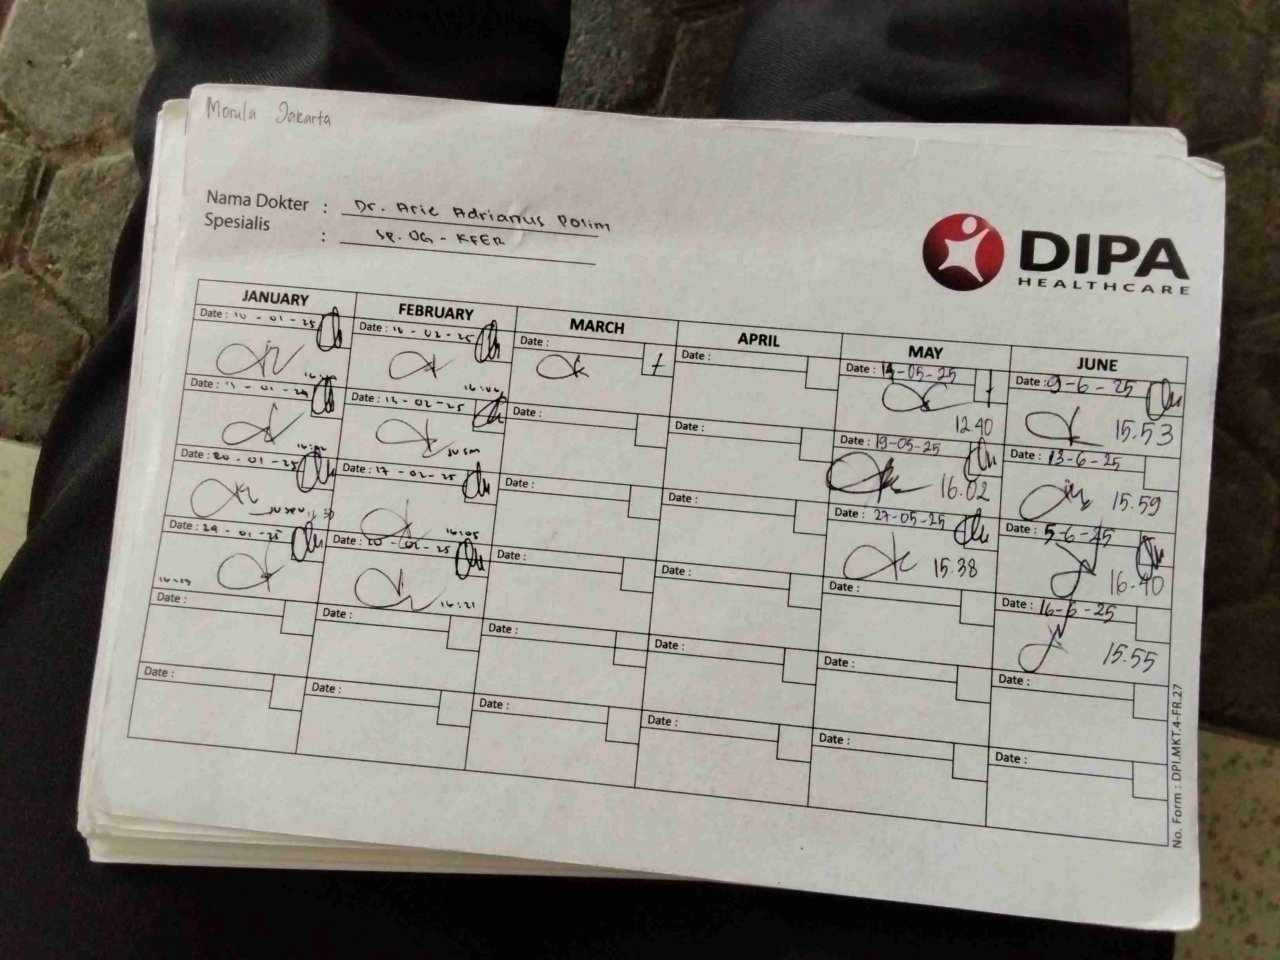 Morula Jakarta
Nama Dokter : Dr. Arie Adrianus Polim
Spesialis : Sp.OG - KFER
DIPA
HEALTHCARE
JANUARY FEBRUARY MARCH APRIL MAY JUNE
Date : 10 - 01 - 25 Date : Date : Date : Date : 14-05-25 Date : 9-6-25
12.40 15.53
Date : Date : 13 - 02 - 25 Date : Date : Date : 19-05-25 Date : 13-6-25
16.02 15.59
Date : 20 - 01 - 25 Date : 17 - 02 - 25 Date : Date : Date : 27-05-25 Date :
16:05 15.38 16.40
Date : 24 - 01 - 25 Date : 20 - 02 - 25 Date : Date : Date : Date : 16-6-25
16:21 15.55
Date : Date : Date : Date : Date : Date :
Date : Date : Date : Date : Date : Date :
No. Form : DPI.MKT.4-FR.27